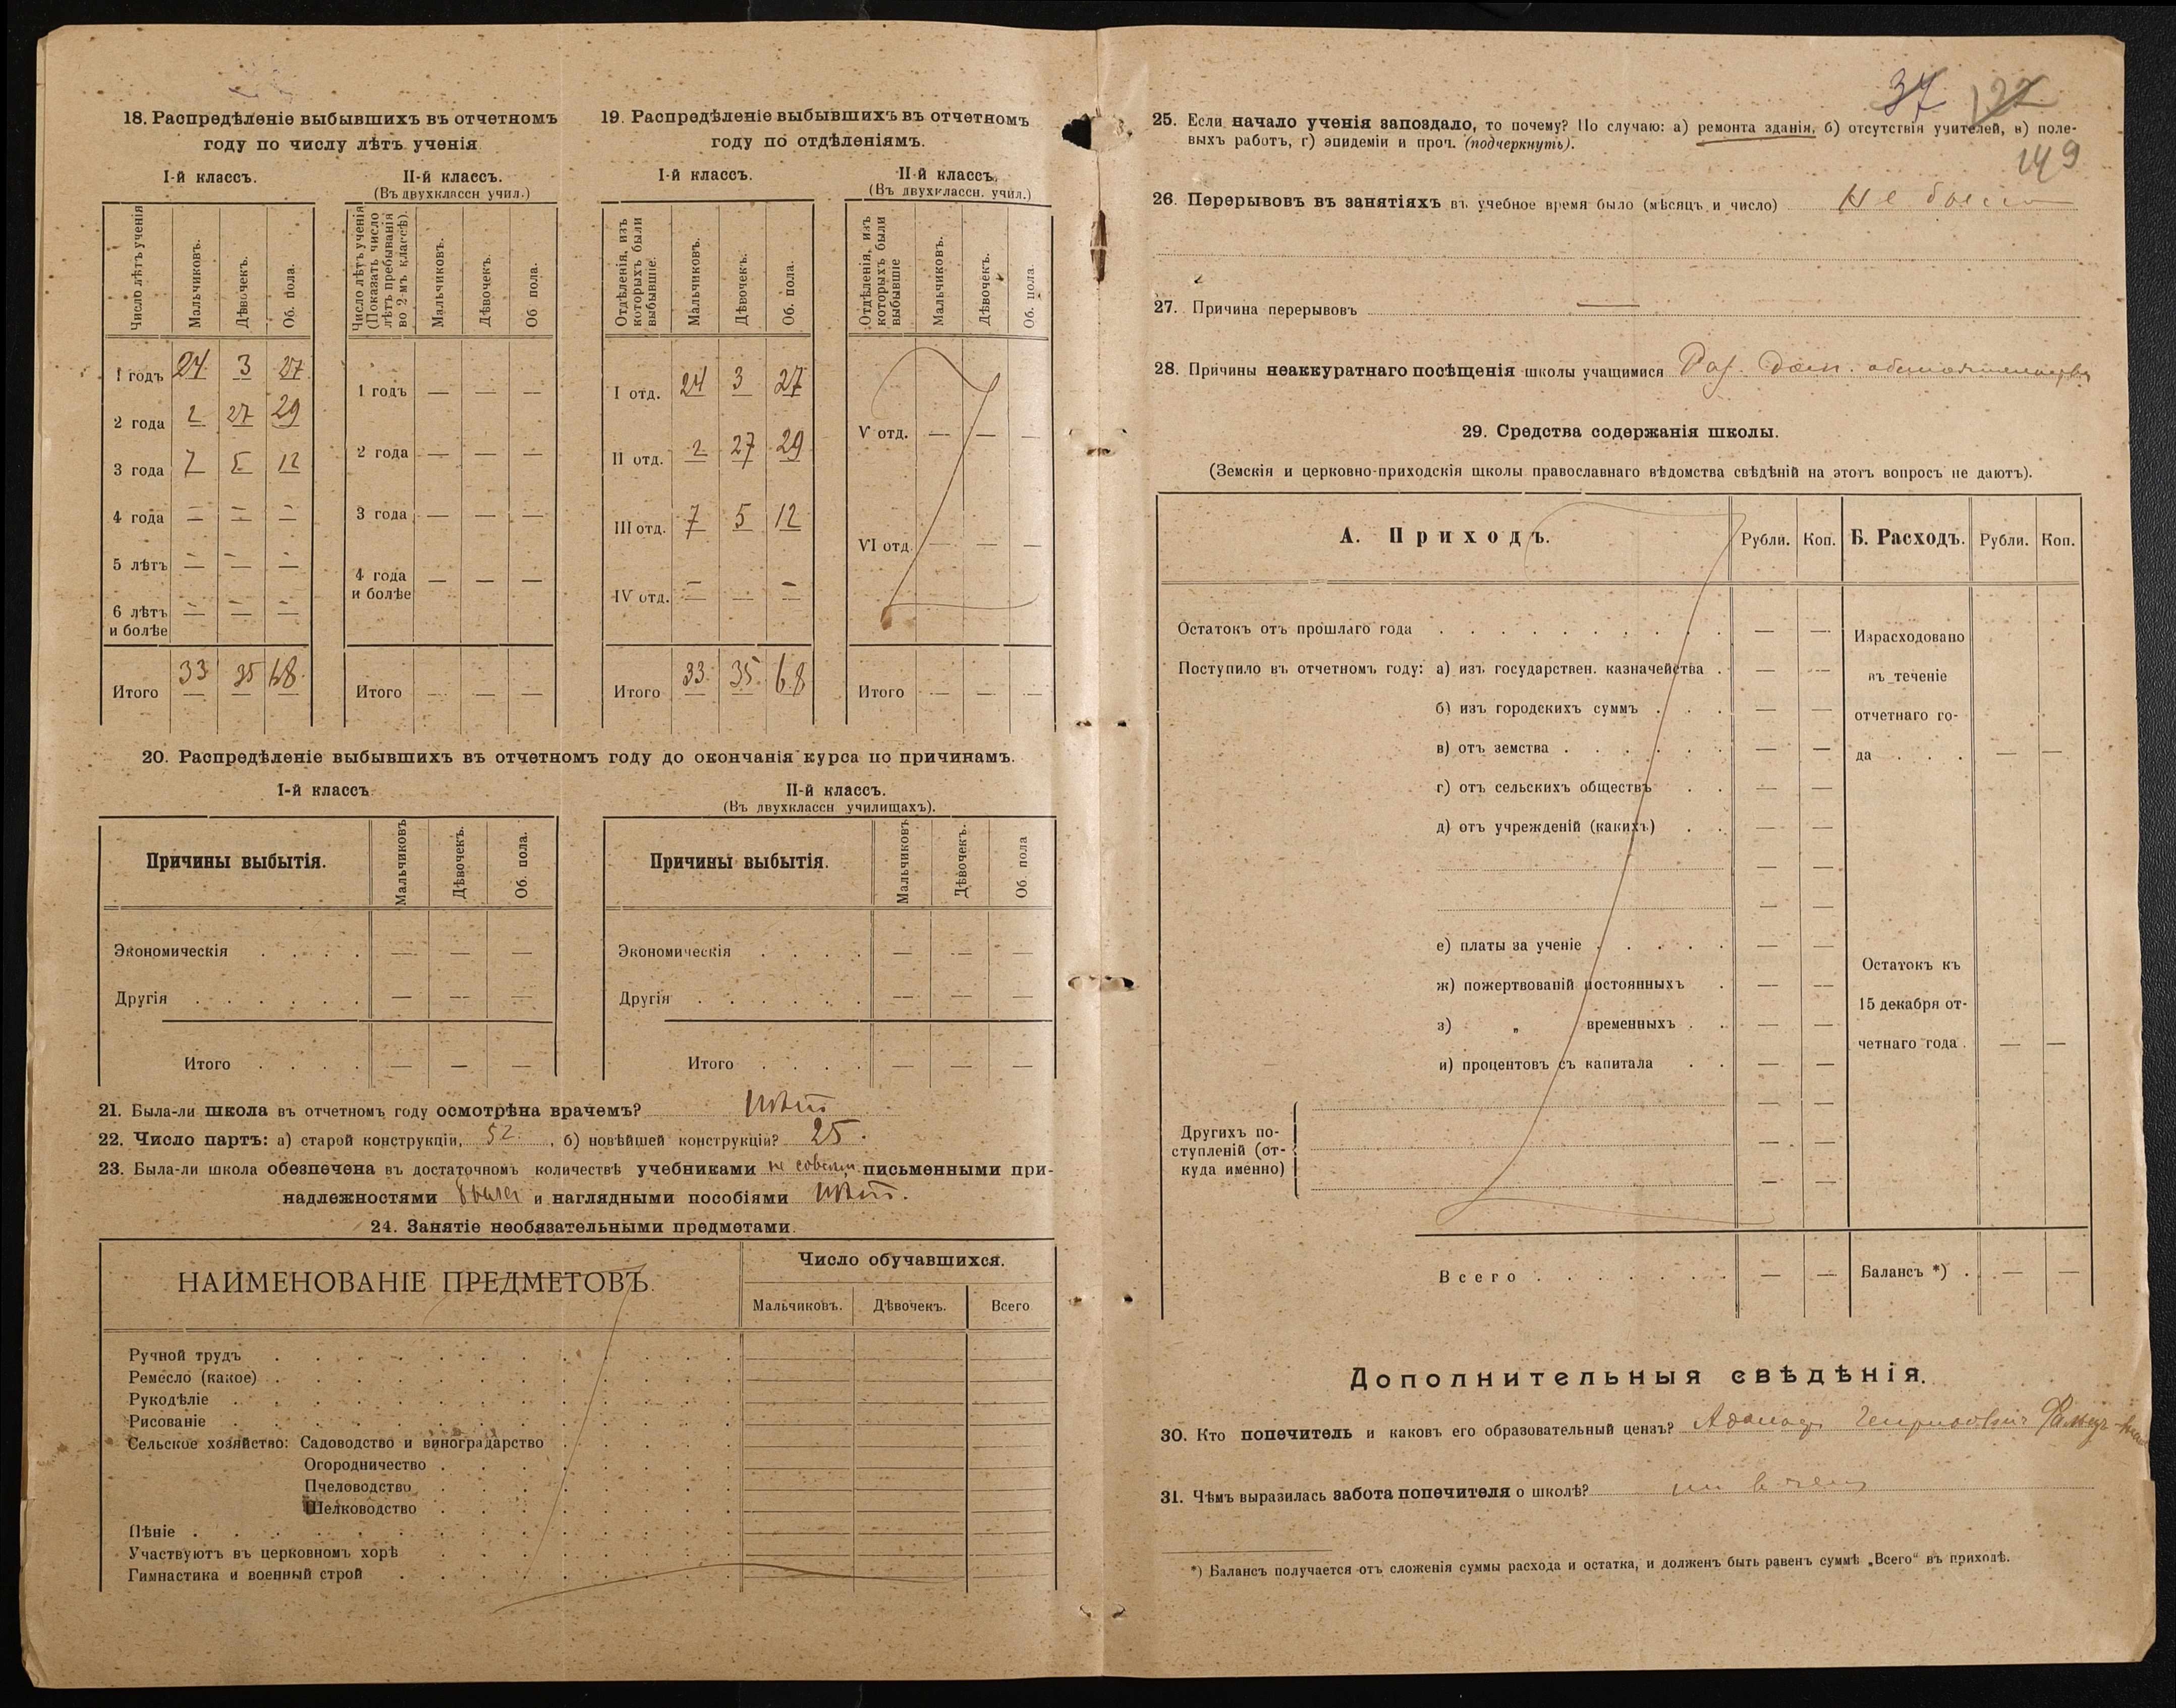 18. Распредѣленіе выбывшихъ въ отчетномъ
году по числу лѣтъ ученія
I-й классъ.
II-й классъ.
(Въ двухклассн учил.)
Число лѣтъ ученія
Мальчиковъ.
Дѣвочекъ.
Об. пола.
Число лѣтъ ученія
(Показать число
лѣтъ пребыванія
во 2-мъ классѣ).
Мальчиковъ.
Дѣвочекъ.
Об пола.
1 годъ 24 3 27
2 года 2 27 29
3 года 7 5 12
4 года — — —
5 лѣтъ — — —
6 лѣтъ
и болѣе — — —
Итого 33 35 68
1 годъ — — —
2 года — — —
3 года — — —
4 года
и болѣе — — —
Итого — — —
19. Распредѣленіе выбывшихъ въ отчетномъ
году по отдѣленіямъ.
I-й классъ.
II-й классъ.
(Въ двухклассн. учил.)
Отдѣленія, изъ
которыхъ были
выбывшіе.
Мальчиковъ.
Дѣвочекъ.
Об. пола.
Отдѣленія, изъ
которыхъ были
выбывшіе
Мальчиковъ.
Дѣвочекъ.
Об. пола.
I отд. 24 3 27
II отд. 2 27 29
III отд. 7 5 12
IV отд. — — —
Итого 33 35 68
V отд. — — —
VI отд. — — —
Итого — — —
20. Распредѣленіе выбывшихъ въ отчетномъ году до окончанія курса по причинамъ.
I-й классъ
Причины выбытія.
Мальчиковъ
Дѣвочекъ.
Об. пола.
Экономическія . . . . — — —
Другія . . . . . . — — —
Итого . . . . — — —
II-й классъ.
(Въ двухклассн училищахъ).
Причины выбытія.
Мальчиковъ
Дѣвочекъ.
Об. пола
Экономическія . . . . — — —
Другія . . . . . . — — —
Итого . . . . — — —
21. Была-ли школа въ отчетномъ году осмотрѣна врачемъ? Нѣтъ
22. Число партъ: а) старой конструкціи, 52. , б) новѣйшей конструкціи? 25.
23. Была-ли школа обезпечена въ достаточномъ количествѣ учебниками не совсѣм письменными при-
надлежностями была и наглядными пособіями Нѣтъ.
24. Занятіе необязательными предметами.
НАИМЕНОВАНІЕ ПРЕДМЕТОВЪ.
Число обучавшихся.
Мальчиковъ.
Дѣвочекъ.
Всего
Ручной трудъ
Ремесло (какое)
Рукодѣліе
Рисованіе
Сельское хозяйство: Садоводство и виноградарство
Огородничество
Пчеловодство
Шелководство
Пѣніе
Участвуютъ въ церковномъ хорѣ
Гимнастика и военный строй
37 122
149
25. Если начало ученія запоздало, то почему? По случаю: а) ремонта зданія, б) отсутствія учителей, в) поле-
выхъ работъ, г) эпидеміи и проч. (подчеркнуть).
26. Перерывовъ въ занятіяхъ въ учебное время было (мѣсяцъ и число) Не было
27. Причина перерывовъ —
28. Причины неаккуратнаго посѣщенія школы учащимися Раз. дом. обстоятельства
29. Средства содержанія школы.
(Земскія и церковно-приходскія школы православнаго вѣдомства свѣдѣній на этотъ вопросъ не даютъ).
А. Приходъ.
Рубли.
Коп.
Б. Расходъ.
Рубли.
Коп.
Остатокъ отъ прошлаго года — —
Поступило въ отчетномъ году: а) изъ государствен. казначейства — —
б) изъ городскихъ суммъ — —
в) отъ земства — —
г) отъ сельскихъ обществъ — —
д) отъ учрежденій (какихъ) — —
— —
— —
е) платы за ученіе — —
ж) пожертвованій постоянныхъ — —
з) „ временныхъ — —
и) процентовъ съ капитала — —
Другихъ по-
ступленій (от-
куда именно)
— —
— —
— —
Всего — —
Израсходовано
въ теченіе
отчетнаго го-
да . . . — —
Остатокъ къ
15 декабря от-
четнаго года . — —
Балансъ *) . — —
Дополнительныя свѣдѣнія.
30. Кто попечитель и каковъ его образовательный цензъ?
31. Чѣмъ выразилась забота попечителя о школѣ? ни в чем
*) Балансъ получается отъ сложенія суммы расхода и остатка, и долженъ быть равенъ суммѣ „Всего“ въ приходѣ.